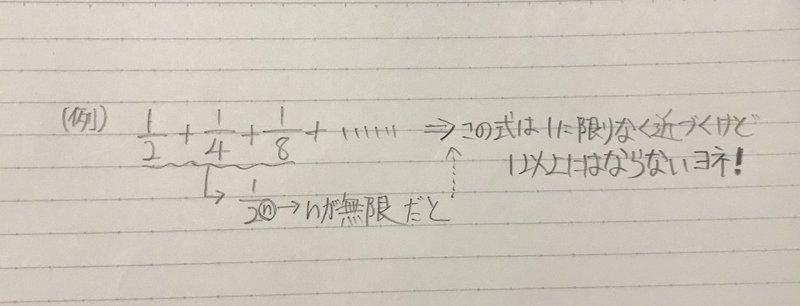 (例) 1/2 + 1/4 + 1/8 + …… ⇒ この式は1に限りなく近づくけど
1以上にはならないヨネ!
↳ 1/2ⓝ → nが無限だと